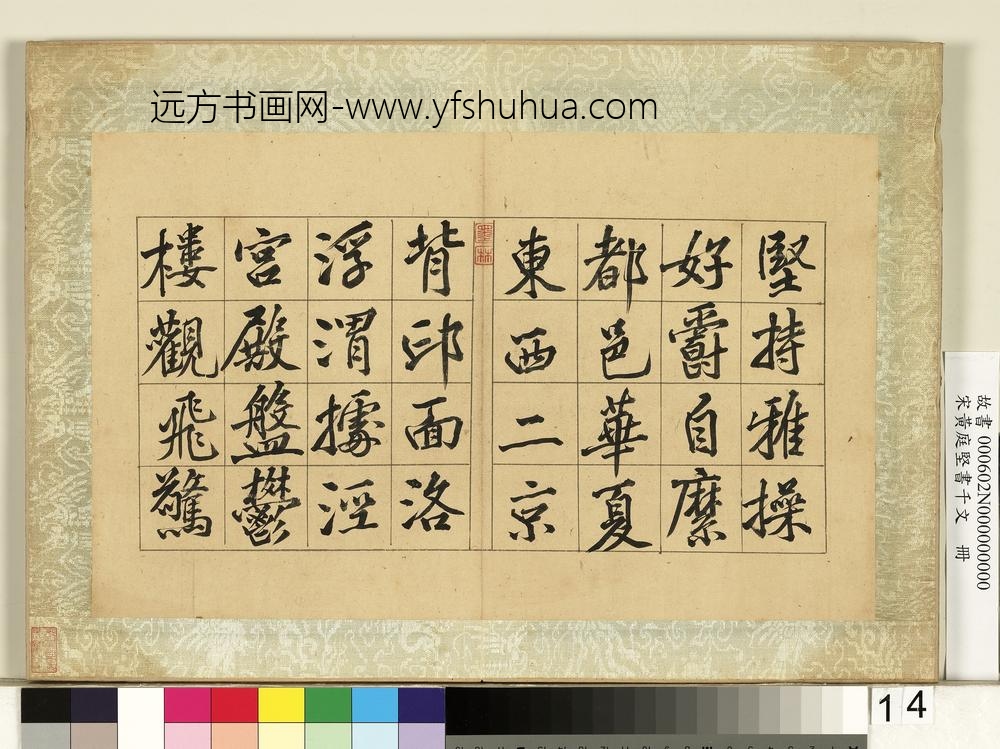 远方书画网-www.yfshuhua.com
堅持雅操
好爵自縻
都邑華夏
東西二京
背邙面洛
浮渭據涇
宮殿盤鬱
樓觀飛驚
故書 000602N000000000
宋黃庭堅書千文 冊
14